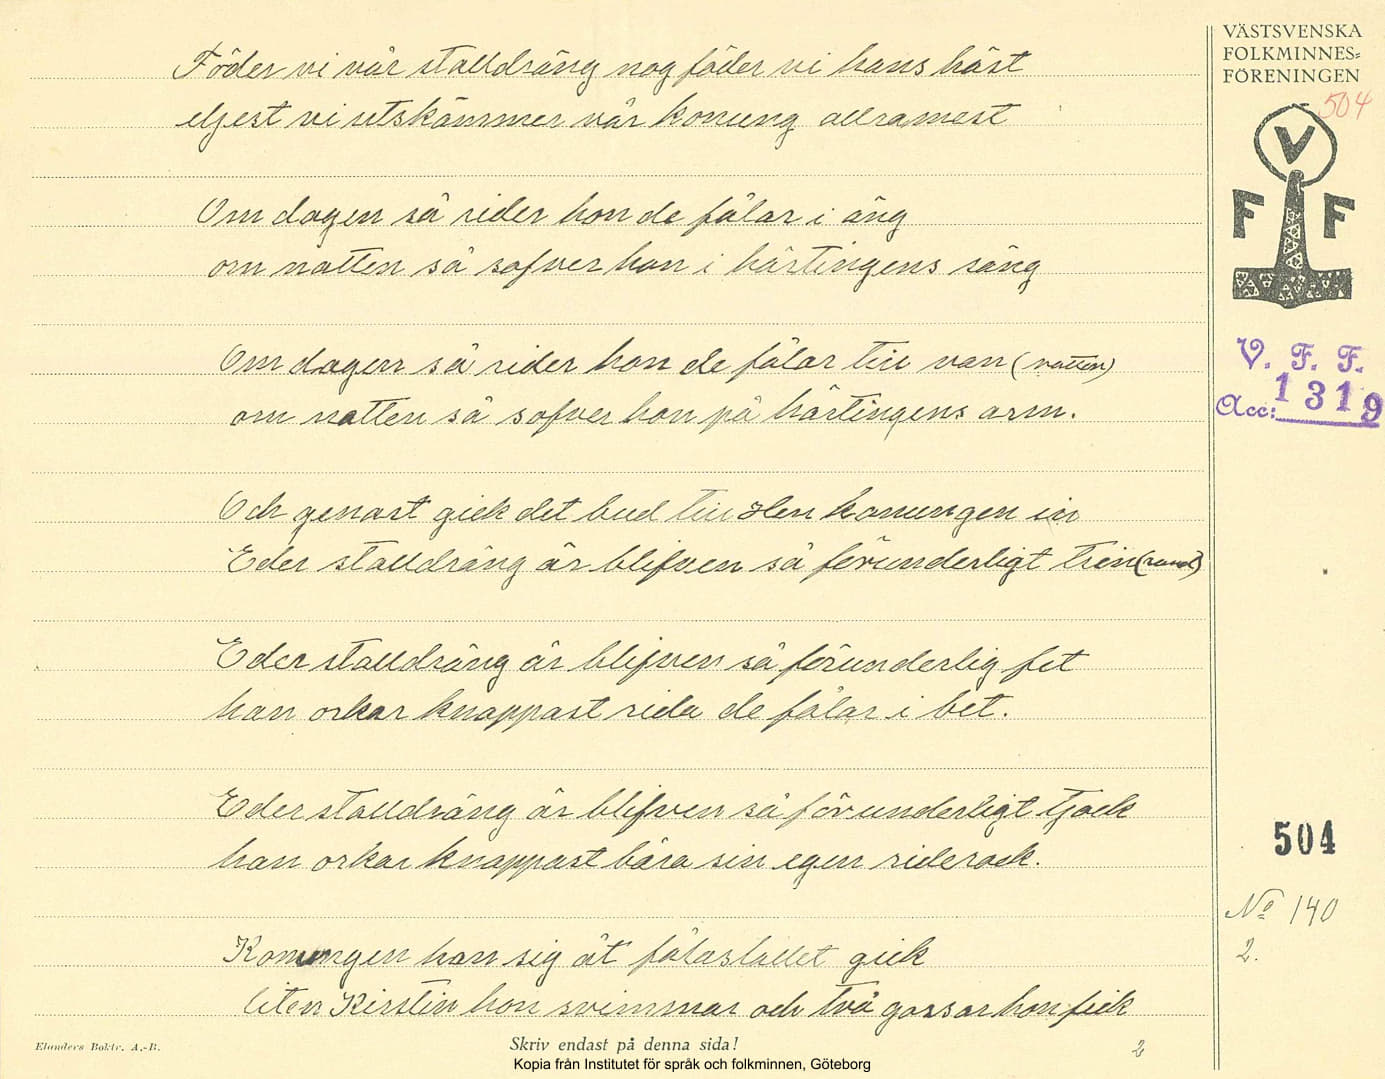 VÄSTSVENSKA
FOLKMINNES=
FÖRENINGEN
504
V
F F
V. F. F.
Acc: 1319
Föder vi vår stalldräng nog föder vi hans häst
eljest vi utskämmer vår konung allramest
Om dagen så rider hon de fålar i äng
om natten så sofver hon i härtingens säng
Om dagen så rider hon de fålar till van (vatten)
om natten så sofver hon på härtingens arm.
Och genast gick det bud till den konungen in
Eder stalldräng är blifven så förunderligt trin (rund)
Eder stalldräng är blifven så förunderlig fet
han orkar knappast rida de fålar i bet.
Eder stalldräng är blifven så förunderligt tjock
han orkar knappast bära sin egen riderock.
Konungen han sig åt fålastallet gick
liten Kirstin hon svimmar och två gossar hon fick
504
No 140
2.
Elanders Boktr. A.-B.
Skriv endast på denna sida!
2
Kopia från Institutet för språk och folkminnen, Göteborg